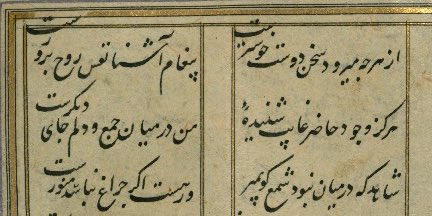 از هرچه میرود سخن دوست خوشترست
پیغام آشنا نفس روح پرورست
هرگز وجود حاضر غایب شنیدهٔ
من در میان جمع و دلم جای دیگرست
شاهد که در میان نبود شمع گو بمیر
ور هست اگر چراغ نباشد منورست